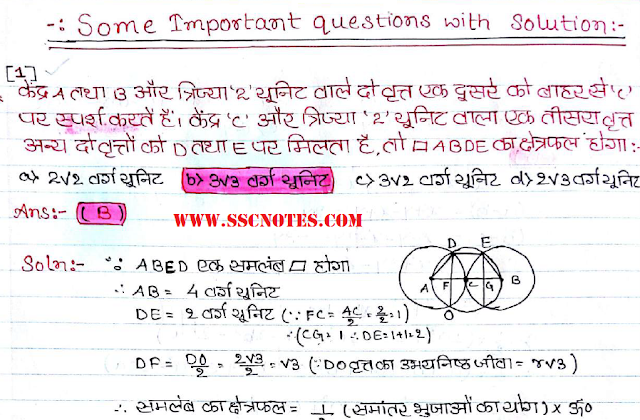 -: Some Important questions with Solution:-
[1]
केंद्र A तथा B और त्रिज्या '2' यूनिट वाले दो वृत्त एक दूसरे को बाहर से 'C'
पर स्पर्श करते हैं। केंद्र 'C' और त्रिज्या '2' यूनिट वाला एक तीसरा वृत्त
अन्य दो वृत्तों को D तथा E पर मिलता है, तो □ ABDE का क्षेत्रफल होगा:-
a) 2√2 वर्ग यूनिट b) 3√3 वर्ग यूनिट c) 3√2 वर्ग यूनिट d) 2√3 वर्ग यूनिट
Ans:- (B)
WWW.SSCNOTES.COM
Soln:- ∵ ABED एक समलंब □ होगा
∴ AB = 4 वर्ग यूनिट
DE = 2 वर्ग यूनिट (∵ FC = AC/2 = 2/2 = 1)
∴ (CG = 1 ∴ DE = 1+1 = 2)
DF = DO/2 = 2√3/2 = √3 (∵ DO वृत्त का उभयनिष्ठ जीवा = r√3)
∴ समलंब का क्षेत्रफल = 1/2 (समांतर भुजाओं का योग) × ऊँ०
D E
A F C G B
O